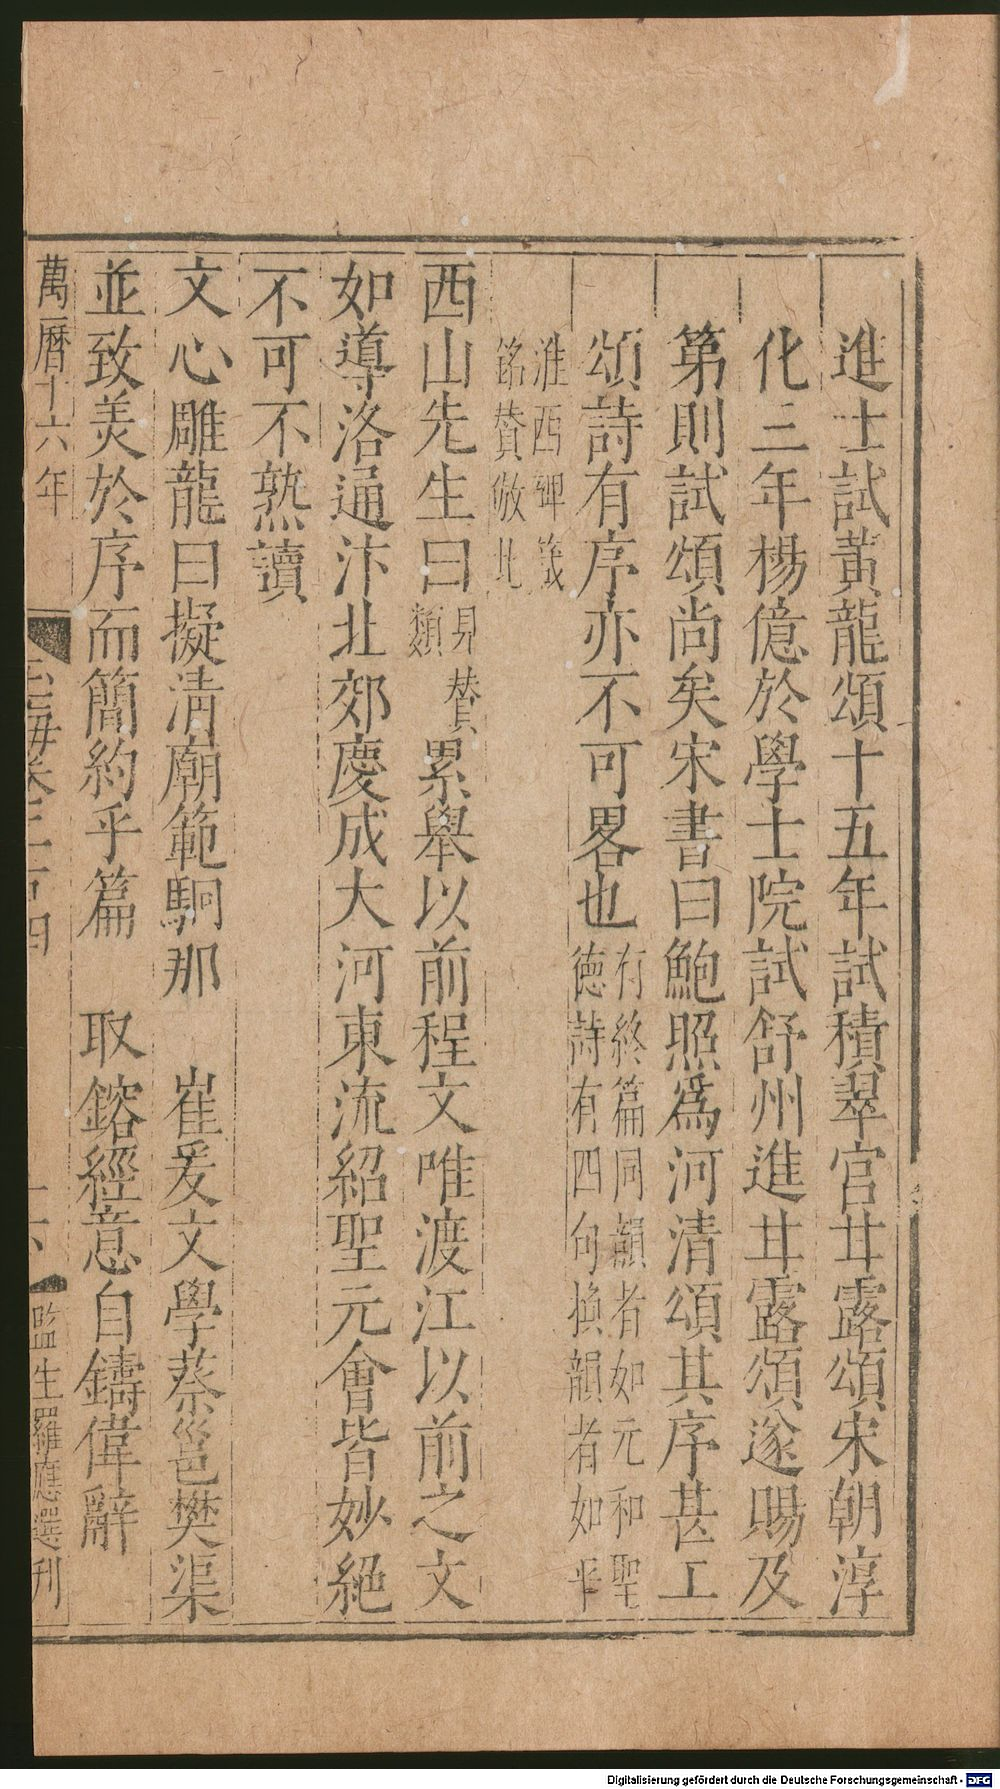 進士試黃龍頌十五年試積翠宮甘露頌宋朝淳
化三年楊億於學士院試舒州進甘露頌遂賜及
第則試頌尚矣宋書曰鮑照爲河清頌其序甚工
頌詩有序亦不可畧也有終篇同韻者如元和聖德詩有四句換韻者如平
淮西碑箴銘賛倣此
西山先生曰見賛類累舉以前程文唯渡江以前之文
如導洛通汴北郊慶成大河東流紹聖元會皆妙絕
不可不熟讀
文心雕龍曰擬淸廟範駉那 崔爰文學蔡邕樊渠
並致美於序而簡約乎篇 取鎔經意自鑄偉辭
萬曆十六年
玉海卷二百四
監生羅應選刋
Digitalisierung gefördert durch die Deutsche Forschungsgemeinschaft - DFG